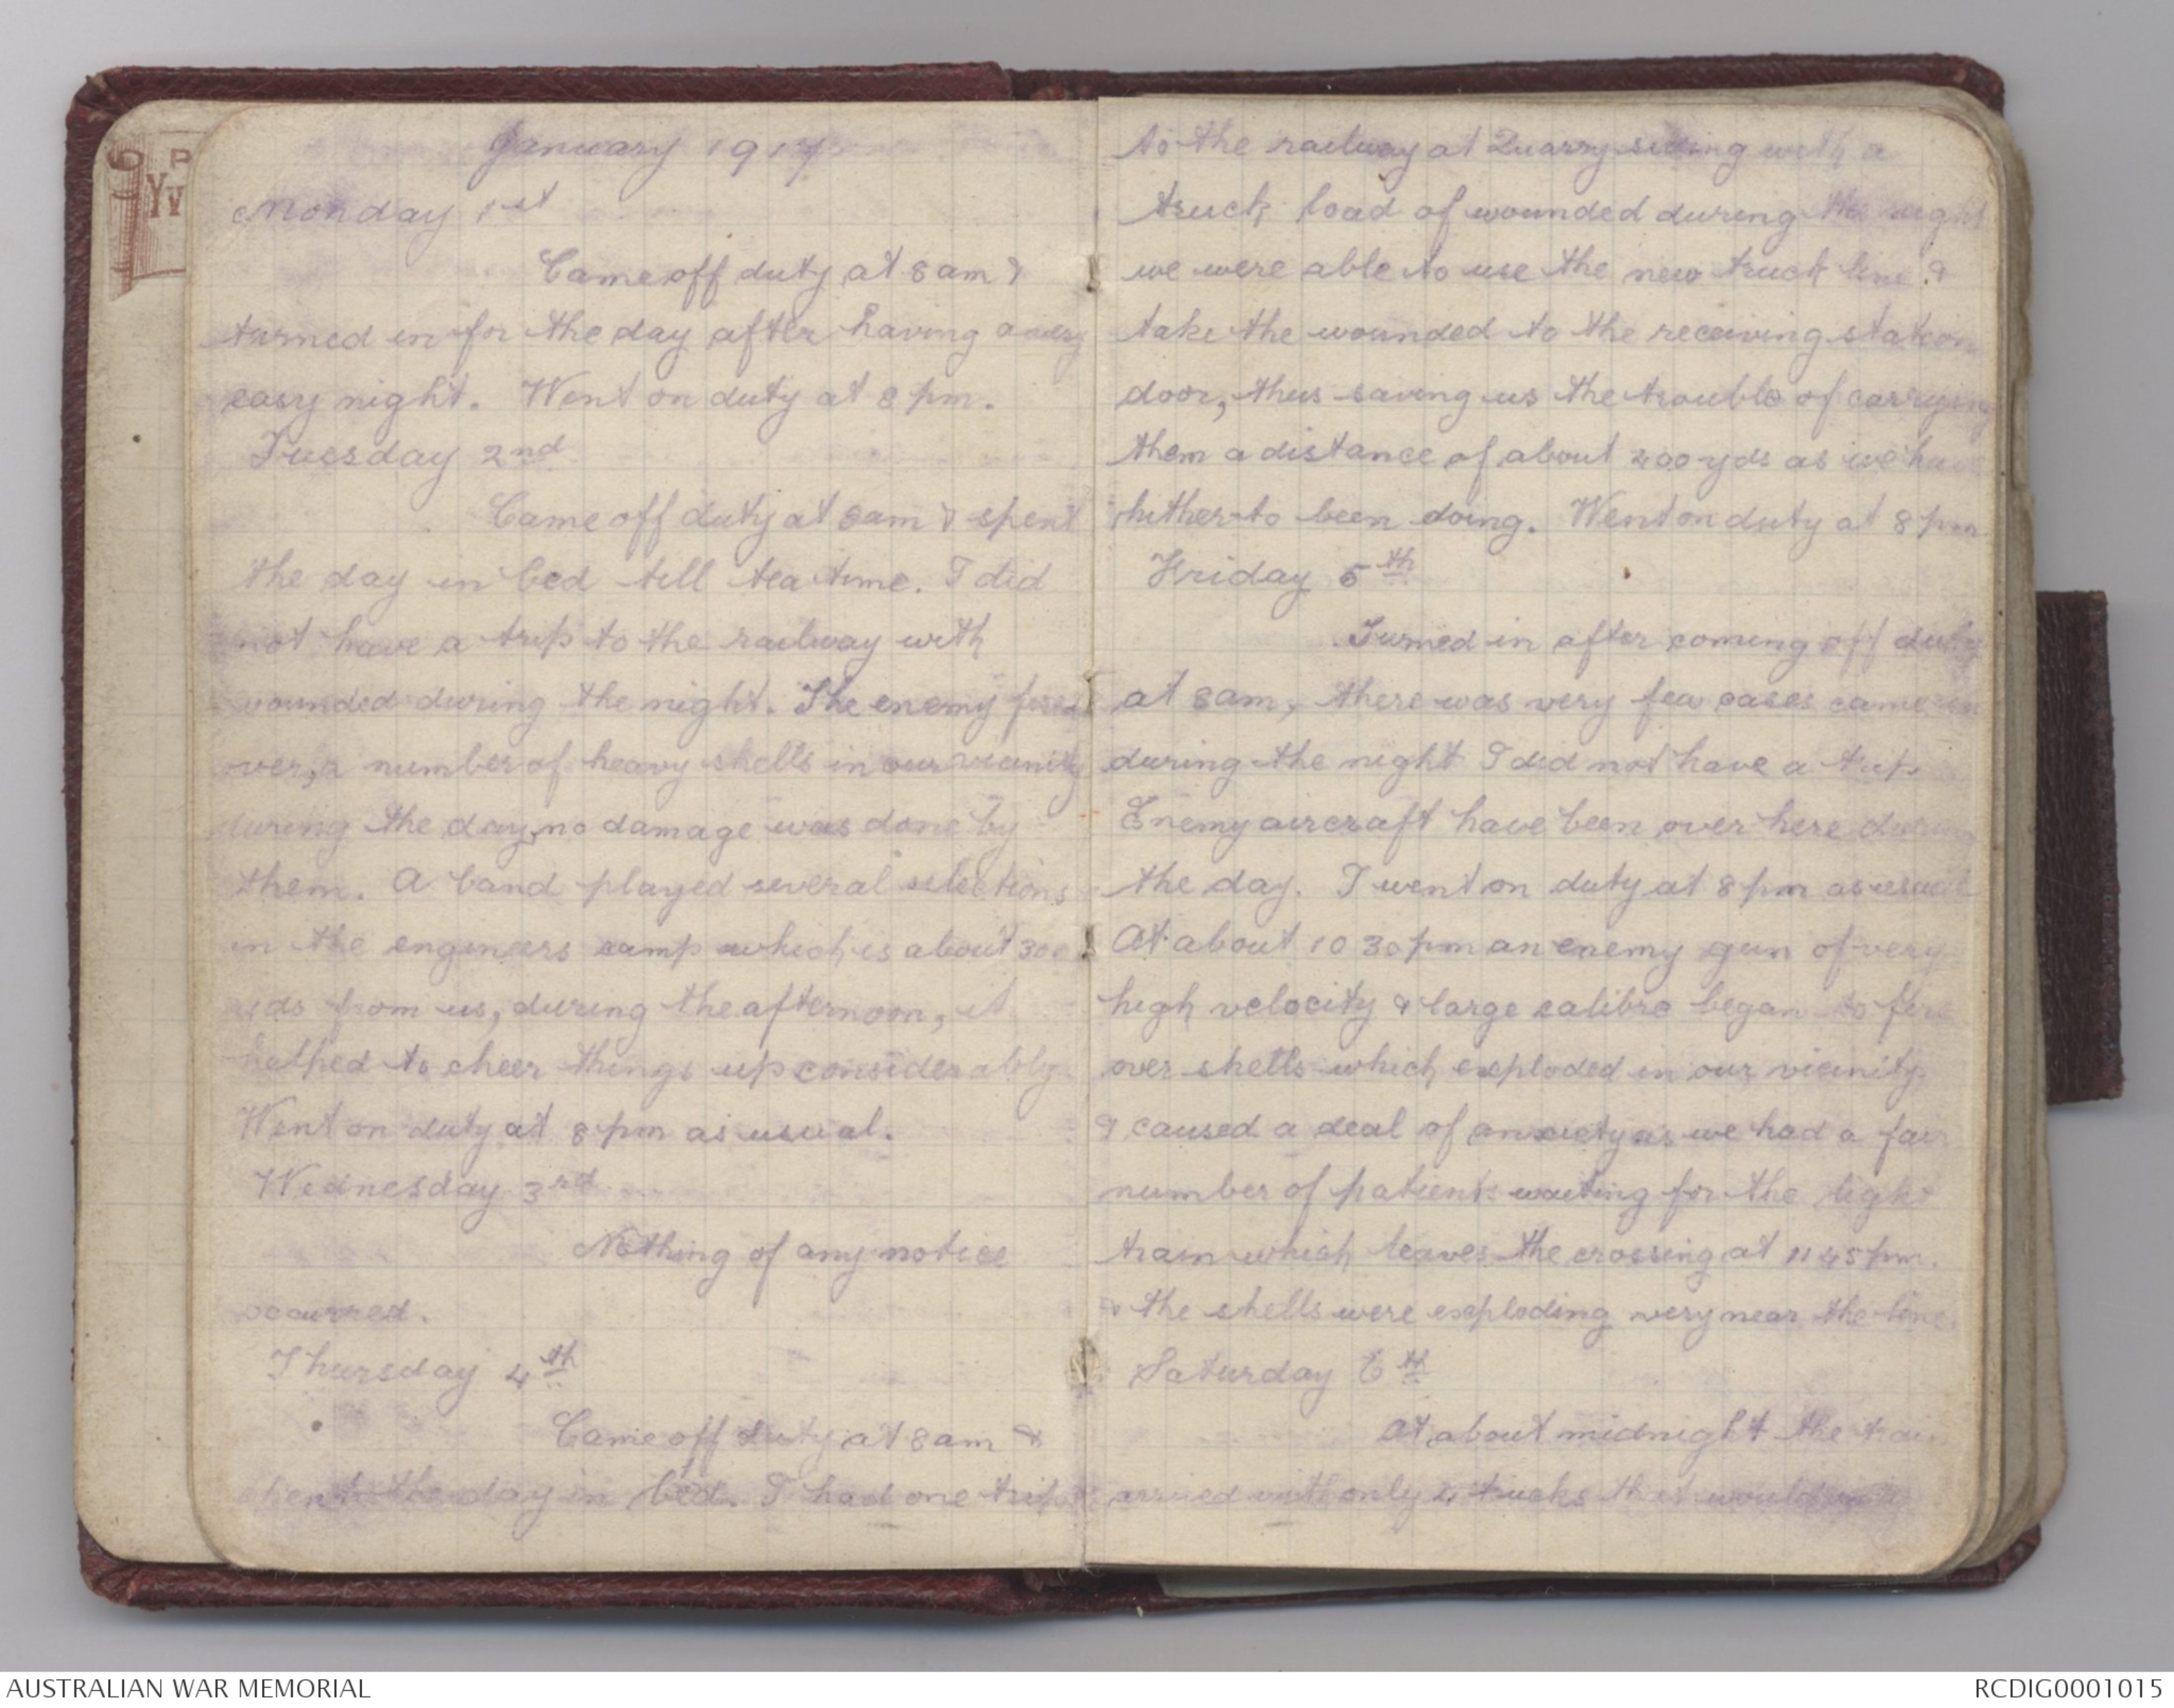 January 1917
Monday 1st
Came off duty at 8 am &
turned in for the day after having a very
easy night. Went on duty at 8 pm.
Tuesday 2nd
Came off duty at 8am & spent
the day in bed till tea time. I did
not have a trip to the railway with
wounded during the night. The enemy fired
over, a number of heavy shells in our vicinity
during the day, no damage was done by
them. A band played several selections
in the engineers camp which is about 300
yds from us, during the afternoon, it
helped to cheer things up considerably
Went on duty at 8 pm as usual.
Wednesday 3rd
Nothing of any notice
occurred.
Thursday 4th
Came off duty at 8am &
spent the day in bed. I had one trip
to the railway at Quarry siding with a
truck load of wounded during the night
we were able to use the new truck line &
take the wounded to the receiving station
door, thus saving us the trouble of carrying
them a distance of about 400 yds as we have
hither-to been doing. Went on duty at 8 pm
Friday 5th
Turned in after coming off duty
at 8am, there was very few cases came in
during the night I did not have a trip
Enemy aircraft have been over here during
the day. I went on duty at 8 pm as usual
At about 10 30 pm an enemy gun of very
high velocity & large calibre began to fire
over shells which exploded in our vicinity
& caused a deal of anxiety as we had a fair
number of patients waiting for the light
train which leaves the crossing at 11 45 pm.
& the shells were exploding very near the line.
Saturday 6th
At about midnight the train
arrived with only 2 trucks that would
O P
YV
AUSTRALIAN WAR MEMORIAL
RCDIG0001015